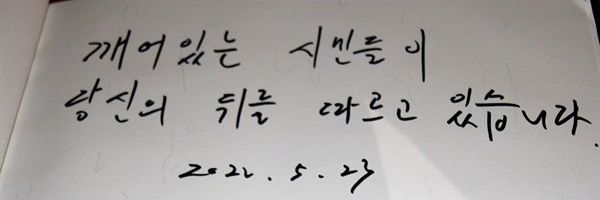 깨어있는 시민들이
당신의 뒤를 따르고 있습니다.
2022. 5. 23